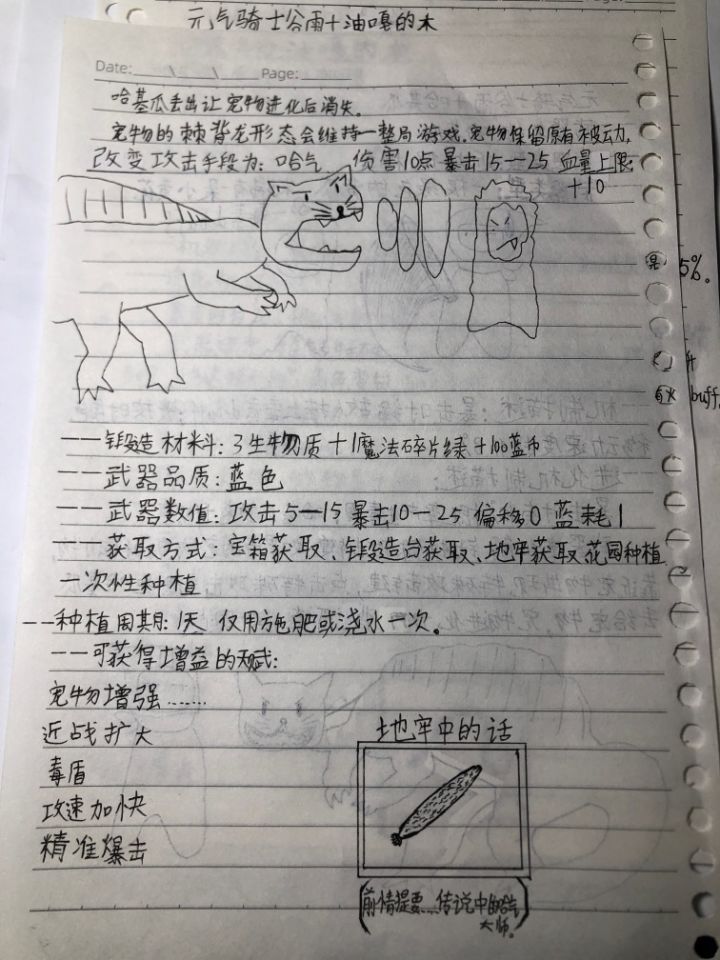 元气骑士谷雨+油嘎的木
Date: / / Page:
哈基瓜丢出让宠物进化后消失。
宠物的棘背龙形态会维持一整局游戏.宠物保留原有被动,
改变攻击手段为:哈气 伤害10点 暴击15—25 血量上限:
+10
5%。
buff,
——锻造材料:3生物质+1魔法碎片绿+100蓝币
——武器品质:蓝色
——武器数值:攻击5—15 暴击10—25 偏移0 蓝耗1
——获取方式:宝箱获取、锻造台获取、地牢获取、花园种植
一次性种植
——种植周期:1天 仅用施肥或浇水一次。
——可获得增益的天赋:
宠物增强……
近战扩大
毒盾
攻速加快
精准爆击
地牢中的话
(前情提要...传说中的哈气
大师。)